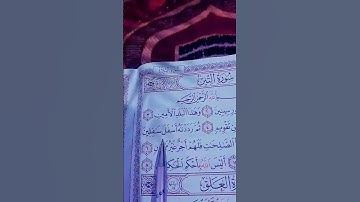 سُورَةُ التِّينِ
بِسْمِ اللَّهِ الرَّحْمَٰنِ الرَّحِيمِ
سِينِينَ ٢ وَهَٰذَا الْبَلَدِ الْأَمِينِ ٣
تَقْوِيمٍ ٤ ثُمَّ رَدَدْنَاهُ أَسْفَلَ سَافِلِينَ
الصَّالِحَاتِ فَلَهُمْ أَجْرٌ غَيْرُ
أَلَيْسَ اللَّهُ بِأَحْكَمِ
الْعَلَقِ